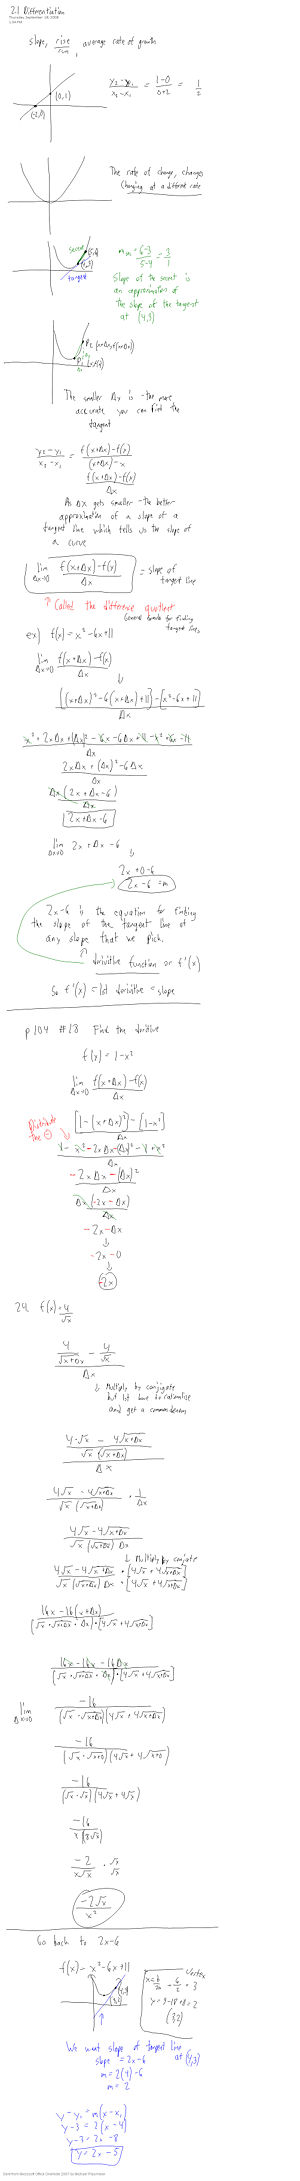 2.1 Differentiation
Thursday, September 18, 2008
slope, rise/run, average rate of growth
(0,1)
(-2,0)
(y₂-y₁)/(x₂-x₁) = (1-0)/(0+2) = 1/2
The rate of change, changes
Changing at a different rate
secant
tangent
m = (6-3)/(5-4) = 3/1
Slope of the secant is
an approximation of
the slope of the tangent
at (4,3)
The smaller Δx is the more
accurate you can find the
tangent
(y₂-y₁)/(x₂-x₁) = (f(x+Δx)-f(x))/((x+Δx)-x)
(f(x+Δx)-f(x))/Δx
As Δx gets smaller the better
approximation of a slope of a
tangent line which tells us the slope of
a curve
lim Δx→0 (f(x+Δx)-f(x))/Δx = slope of
tangent line
↑ Called the difference quotient
General formula for finding
tangent lines
ex) f(x) = x²-6x+11
lim Δx→0 (f(x+Δx)-f(x))/Δx
↓
([(x+Δx)²-6(x+Δx)+11]-[x²-6x+11])/Δx
(x²+2xΔx+(Δx)²-6x-6Δx+11-x²+6x-11)/Δx
(2xΔx+(Δx)²-6Δx)/Δx
Δx(2x+Δx-6)/Δx
2x+Δx-6
lim Δx→0 2x+Δx-6
↓
2x+0-6
2x-6=m
2x-6 is the equation for finding
the slope of the tangent line of
any slope that we pick.
↑ derivitive function or f'(x)
So f'(x) = 1st derivitive = slope
p104 #18 Find the derivitive
f(x) = 1-x²
lim Δx→0 (f(x+Δx)-f(x))/Δx
Distribute
the ⊖
([1-(x+Δx)²]-[1-x²])/Δx
(1-x²-2xΔx-(Δx)²-1+x²)/Δx
(-2xΔx-(Δx)²)/Δx
Δx(-2x-Δx)/Δx
-2x-Δx
↓
-2x-0
↓
-2x
24. f(x) = 4/√x
(4/√(x+Δx) - 4/√x)/Δx
↓ Multiply by conjugate
but 1st have to rationalize
and get a common denom
((4√x - 4√(x+Δx))/(√x(√(x+Δx))))/Δx
(4√x-4√(x+Δx))/(√x(√(x+Δx))) · 1/Δx
(4√x-4√(x+Δx))/(√x(√(x+Δx))Δx)
↓ Multiply by conjate
(4√x-4√(x+Δx))/(√x(√(x+Δx))Δx) · [4√x+4√(x+Δx)]/[4√x+4√(x+Δx)]
(16x-16(x+Δx))/([√x·√(x+Δx)·Δx]·[4√x+4√(x+Δx)])
(16x-16x-16Δx)/([√x·√(x+Δx)·Δx]·[4√x+4√(x+Δx)])
lim Δx→0 -16/((√x·√(x+Δx))(4√x+4√(x+Δx)))
-16/((√x·√(x+0))(4√x+4√(x+0)))
-16/((√x·√x)(4√x+4√x))
-16/(x(8√x))
-2/(x√x) · √x/√x
-2√x/x²
Go back to 2x-6
f(x) = x²-6x+11
vertex
x = -b/2a = 6/2 = 3
y = 9-18+11 = 2
(3,2)
We want slope of tangent line
at (4,3)
slope = 2x-6
m = 2(4)-6
m = 2
y-y₁ = m(x-x₁)
y-3 = 2(x-4)
y-3 = 2x-8
y = 2x-5